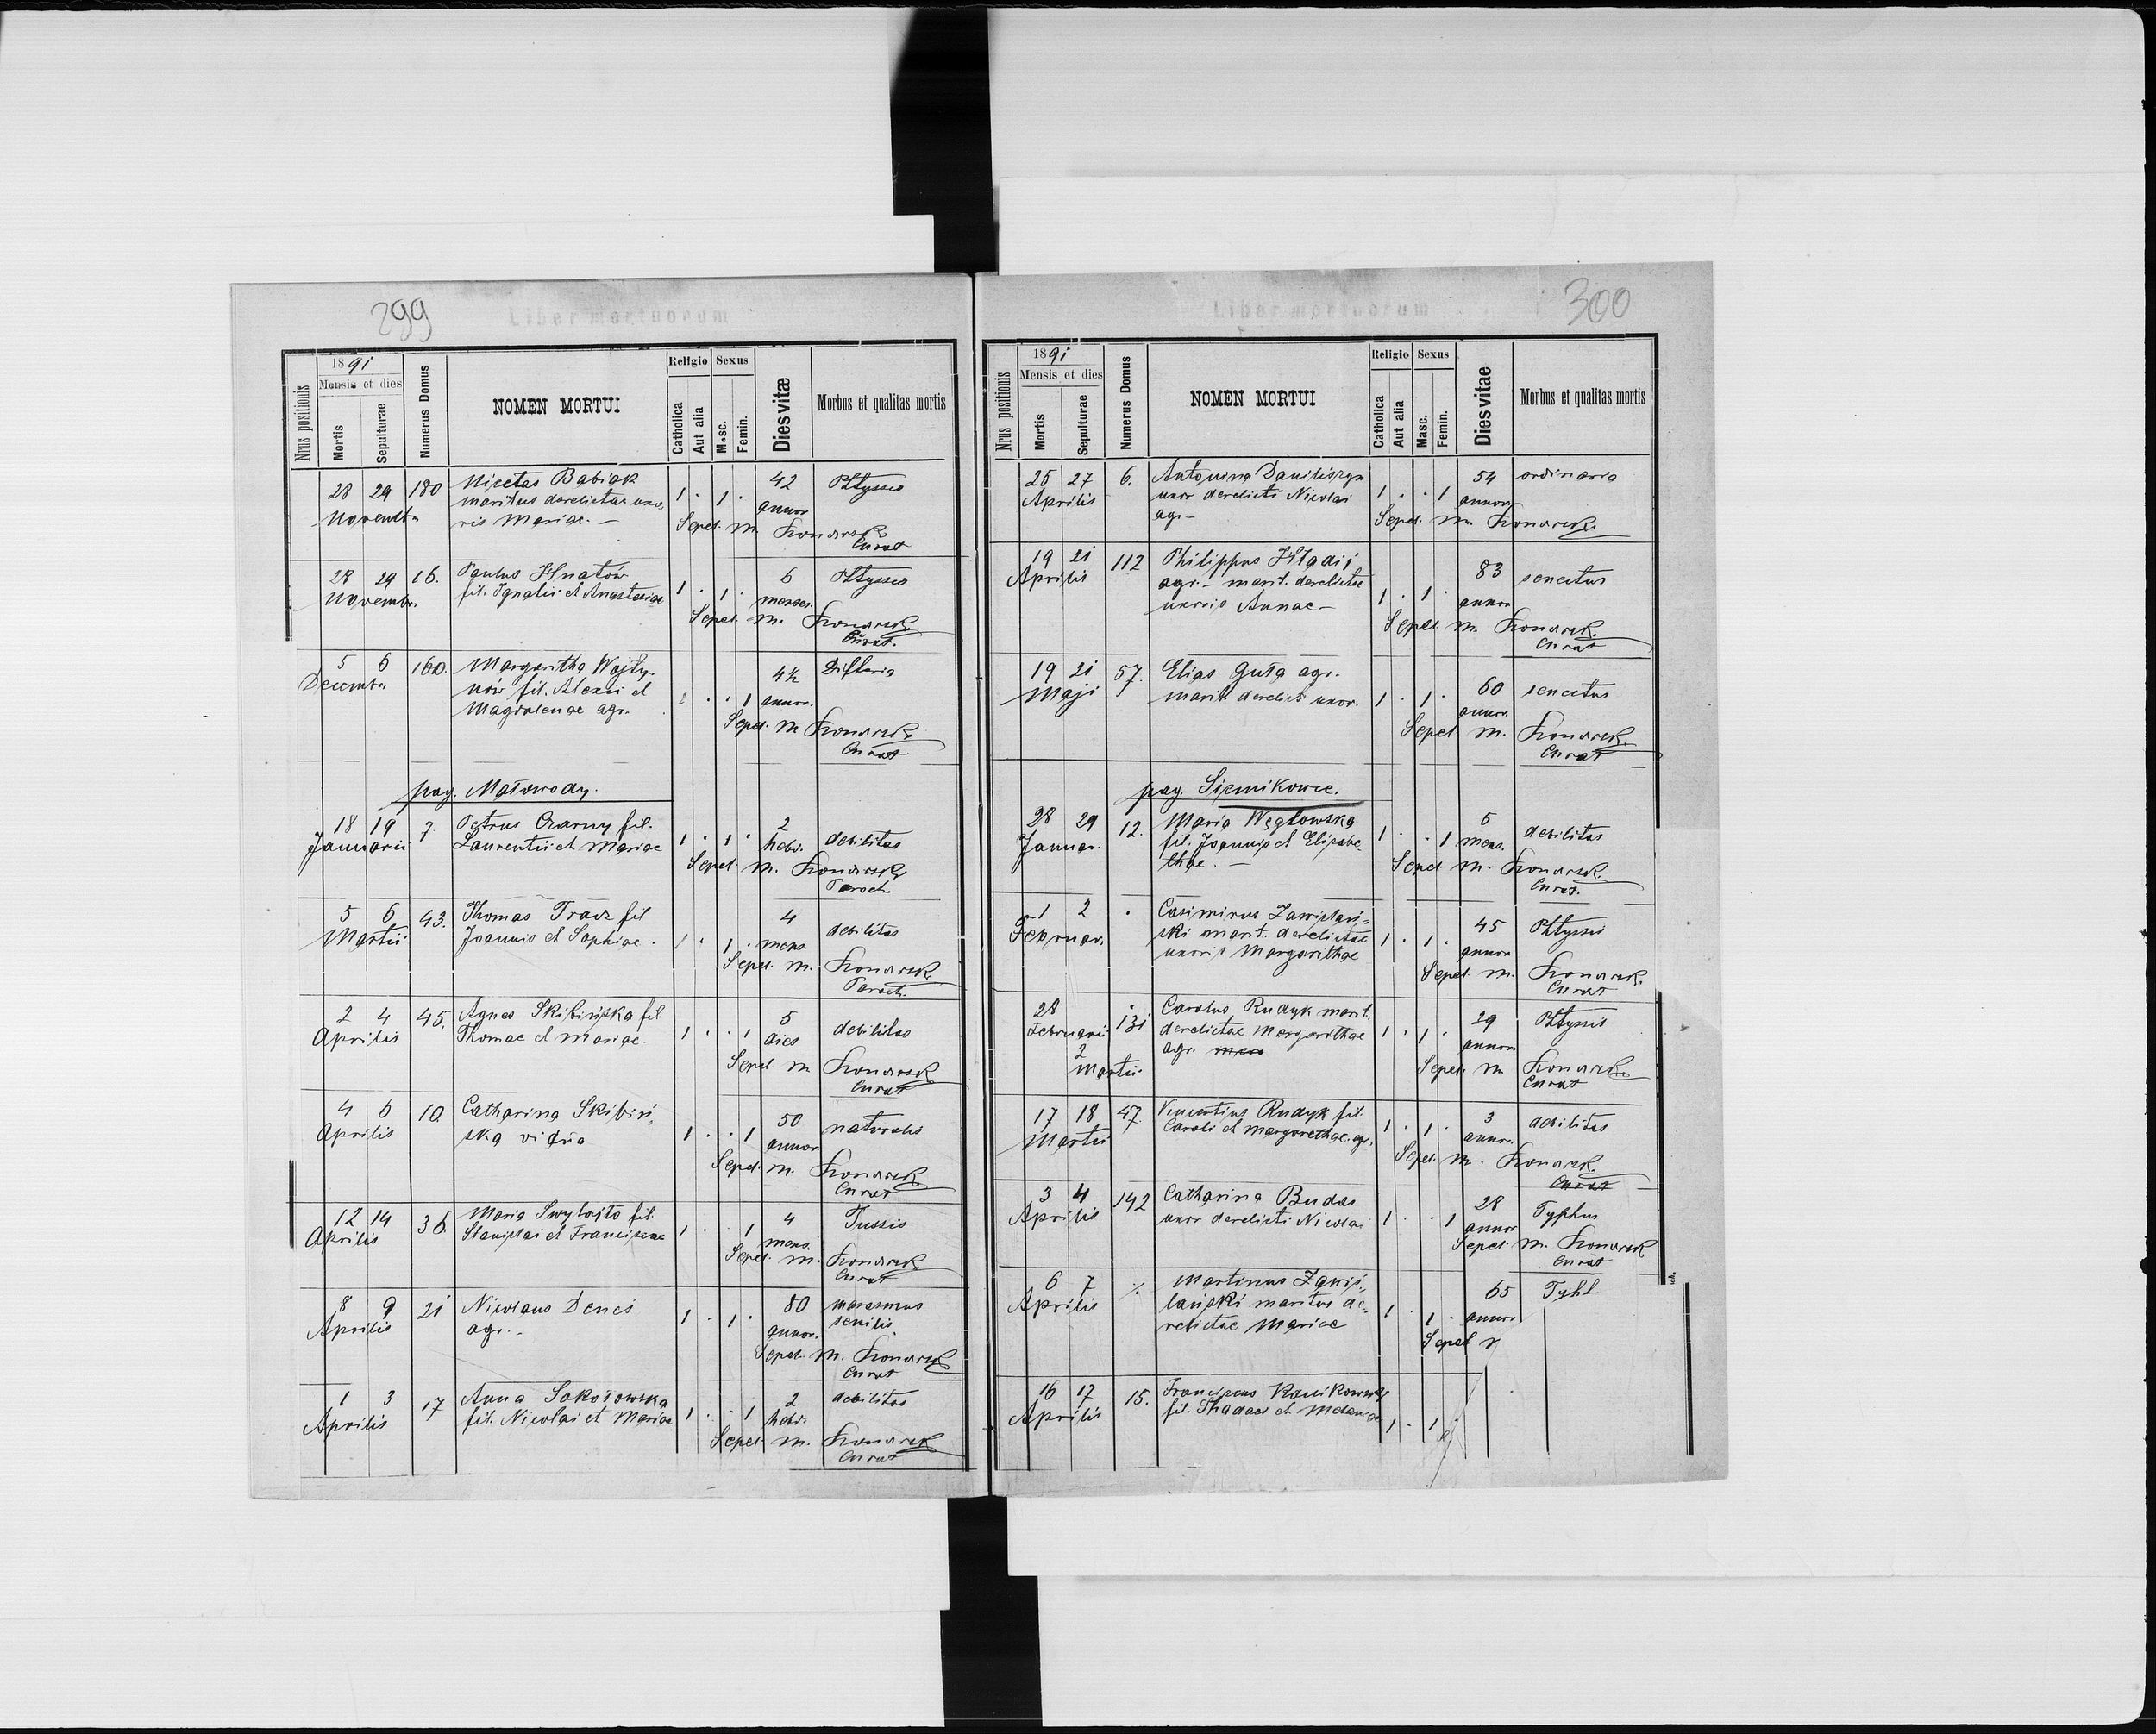 299
Liber mortuorum
1891
Nrus positionis
Mensis et dies
Mortis
Sepulturae
Numerus Domus
NOMEN MORTUI
Religio
Catholica
Aut alia
Sexus
Masc.
Femin.
Dies vitæ
Morbus et qualitas mortis
28 29 180 Nicetas Babiak 1 . 1 . 42 Phtyssis
Novembr maritus derelictae uxo annor
ris Mariae. — Sepel. M. Konarsk
Curat
28 29 16. Paulus Hnatów 1 . 1 . 6 Phtyssis
Novembr. fil. Ignatii et Anastasiae menses.
Sepel. M. Konarsk.
Curat.
5 6 160. Margaritha Wojty- 4½ Difteria
Decembr. nów fil. Alexii et 1 . . 1 annor.
Magdalenae agr.
Sepel. M Konarsk.
Curat
pag. Małowody.
18 19 7 Petrus Czarny fil. 1 . 1 . 2 debilitas
Januarii Laurentii et Mariae hebd.
Sepel. M. Konarsk
Paroch.
5 6 43. Thomas Tracz fil 4 debilitas
Martii Joannis et Sophiae. 1 . 1 . mens.
Sepel. M. Konarsk.
Paroch.
2 4 45. Agnes Skibińska fil. 5 debilitas
Aprilis Thomae et Mariae. 1 . . 1 dies
Sepel M Konarsk
Curat
4 6 10 Catharina Skibiń- 50 naturalis
Aprilis ska vidua 1 . . 1 annor
Sepel. M. Konarsk
Curat
12 14 36 Maria fil. 4 Tussis
Aprilis Stanislai et Franciscae 1 . . 1 mens.
Sepel. M. Konarsk.
Curat
8 9 21 Nicolaus Denes 80 marasmus
Aprilis agr. - 1 . 1 . annor. senilis.
Sepel. M. Konarsk
Curat
1 3 17 Anna Sokołowska 2 debilitas
Aprilis fil. Nicolai et Mariae 1 . . 1 hebd.
Sepel M. Konarsk
Curat
300
Liber mortuorum
1891
Nrus positionis
Mensis et dies
Mortis
Sepulturae
Numerus Domus
NOMEN MORTUI
Religio
Catholica
Aut alia
Sexus
Masc.
Femin.
Dies vitae
Morbus et qualitas mortis
25 27 6. Antonina Daniliszyn 54 ordinaria
Aprilis uxor derelicti Nicolai 1 . . 1 annor
agr- Sepel. M. Konarsk.
19 21 112 Philippus Hładij 83 senectus
Aprilis agr. - marit. derelictae 1 . 1 . annor
uxoris Annae —
Sepel. M. Konarsk.
Curat
19 21 57. Elias Guła agr. 60 senectus
Maji marit. derelict. uxor. 1 . 1 . annor.
Sepel M. Konarsk.
Curat
pag. Siemikowce.
28 29 12. Maria Węgłowska 5 debilitas
Januar. fil. Joannis et Elisabe- 1 . . 1 mens.
thae. — Sepel M. Konarsk.
Curat.
1 2 . Casimirus Zawislań- 45 Phtyssis
Februar. ski marit. derelictae 1 . 1 . annor
uxoris Margarithae
Sepel. M. Konarsk.
Curat
28 131 Carolus Rudyk marit. 29 Phtyssis
Februarii derelictae Margarithae 1 . 1 . annor.
2 agr.
Martii Sepel. M. Konarsk
Curat
17 18 47. Vincentius Rudyk fil. 3 debilitas
Martii Caroli et Margarethae agr. 1 . 1 . annor.
Sepel. M. Konarsk.
Curat
3 4 142 Catharina Budas 28 Typhus
Aprilis uxor derelicti Nicolai 1 . . 1 annor
Sepel. M. Konarsk
Curat
6 7 ./. Martinus Zawis- 65 Tyhl
Aprilis lański maritus de- 1 . 1 . annor
relictae Mariae
Sepel
16 17 15. Franciscus
Aprilis fil. Thadaei et 1 . 1